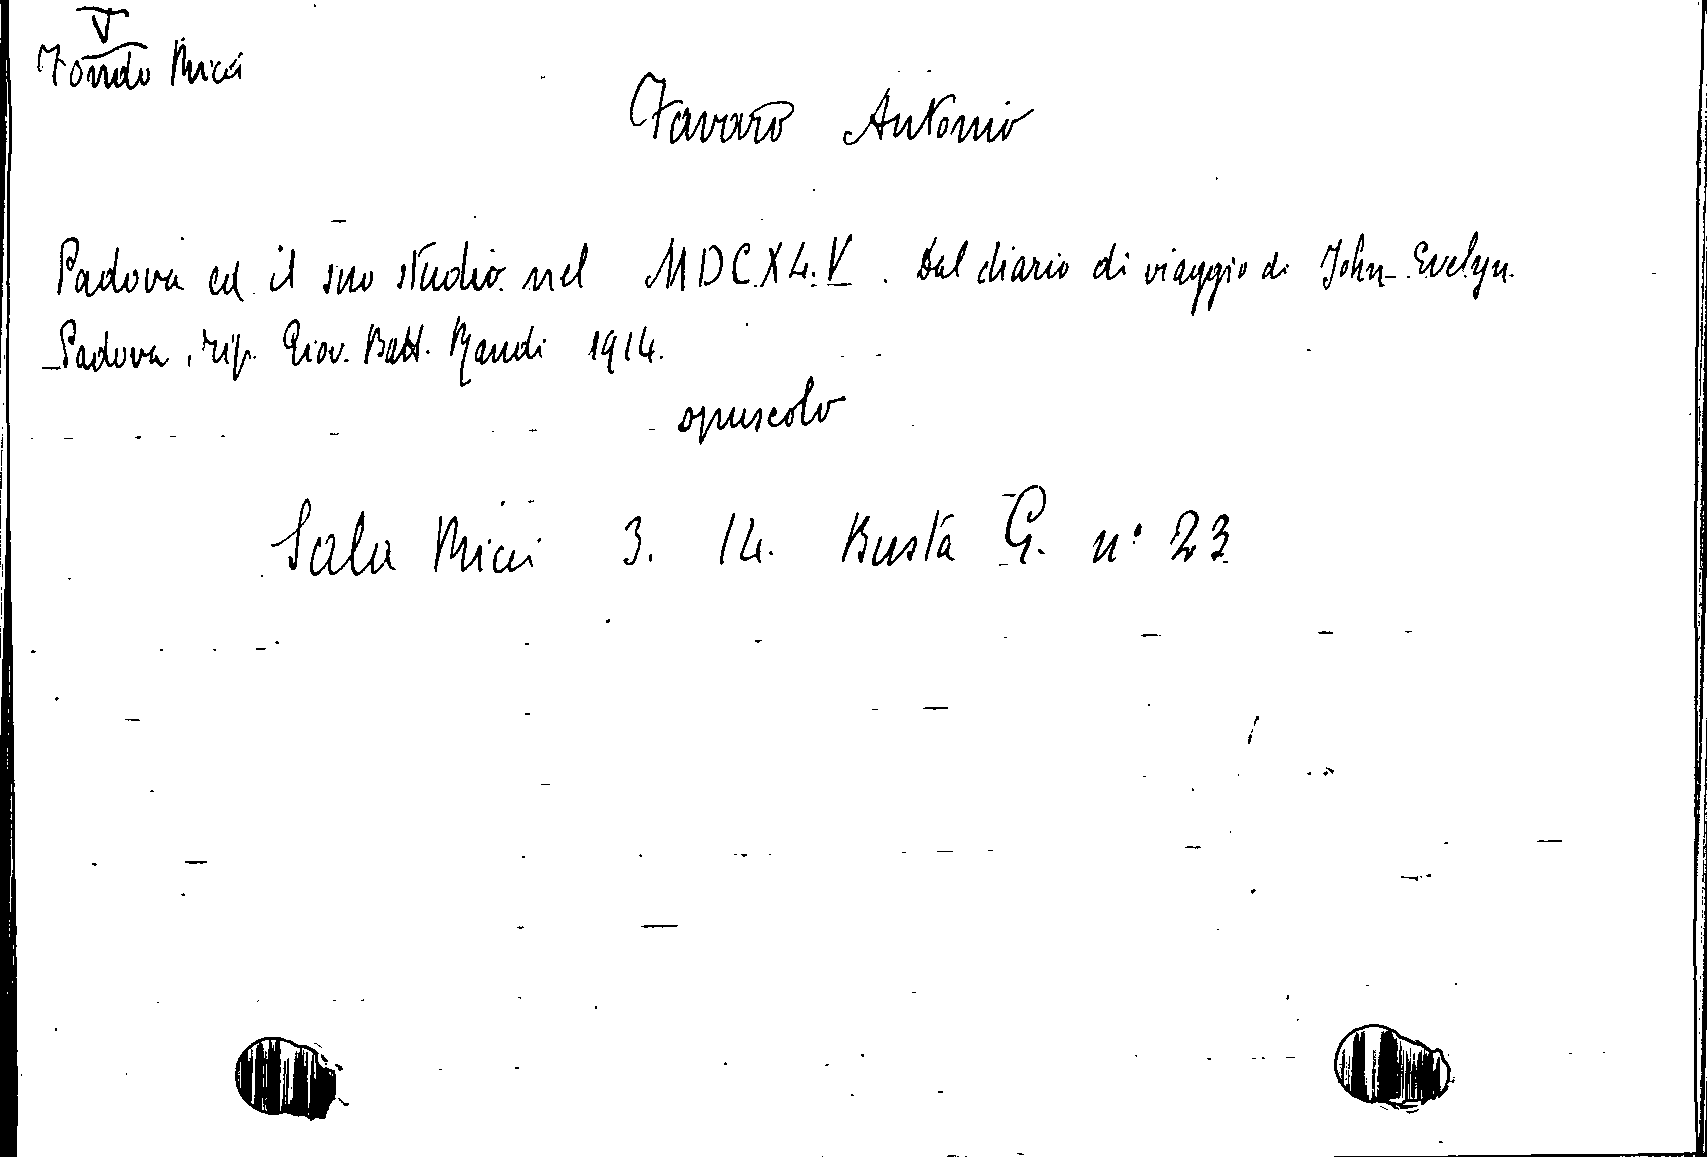 V
Fondo Ricci
Favaro Antonio
Padova ed il suo studio nel MDCXLV. Dal diario di viaggio di John Evelyn.
Padova, tip. Giov. Batt. Randi 1914.
opuscolo
Sala Ricci 3. 14. Busta G. n° 23